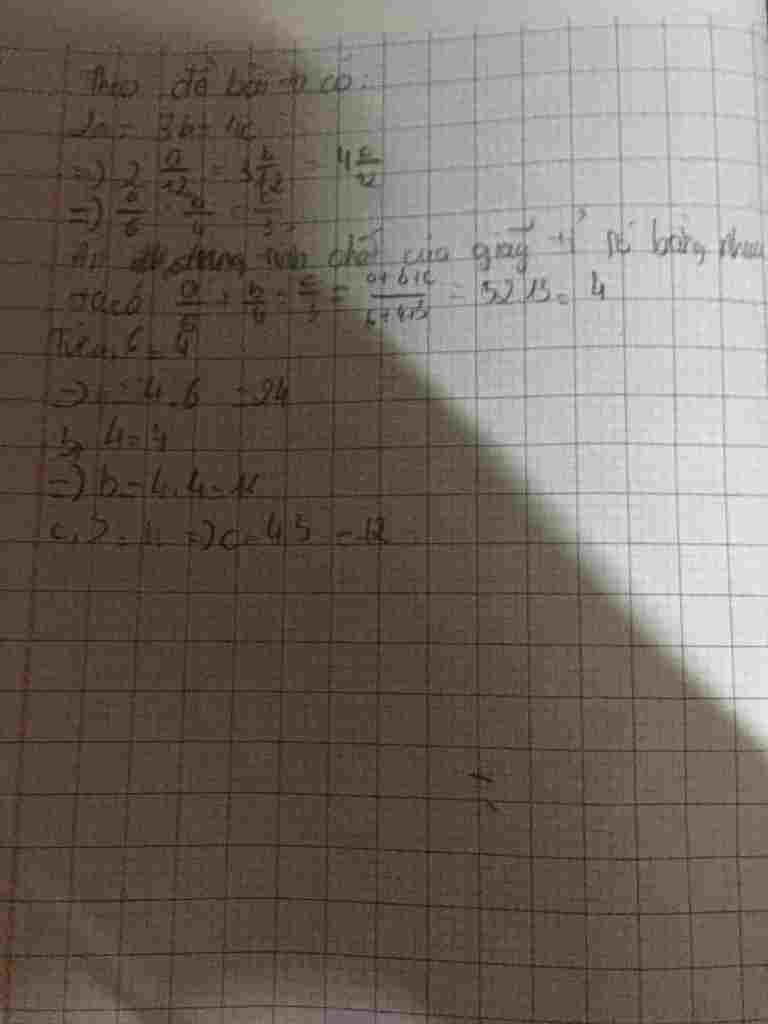 Theo đề bài ta có:
2a = 3b = 4c
=) 2 a/12 = 3 b/12 = 4 c/12
=) a/6 = /4 = /3
Áp dụng tính chất của dãy tỉ số bằng nhau
Ta có a/6 + b/4 = c/3 = a+b+c/6+4+3 = 52 13 = 4
6 = 4
=) = 4.6 = 24
b, 4 = 4
=) b = 4.4 = 16
c, 3 = 4 =) c = 4 3 = 12